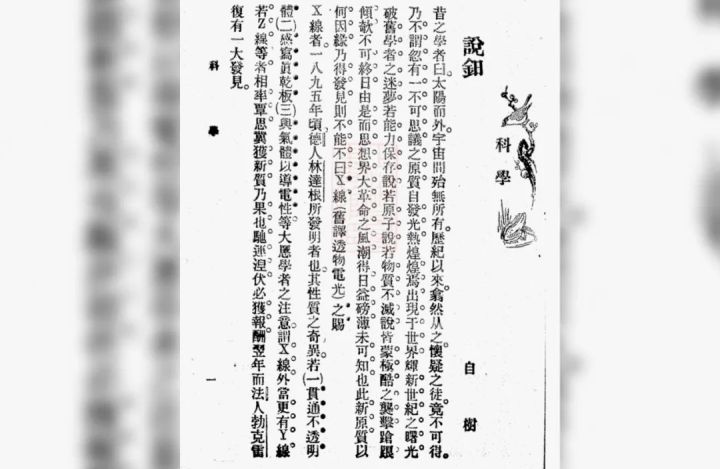 科學
說鈤
自樹
昔之學者曰太陽而外宇宙間殆無所有歷紀以來翕然從之懷疑之徒竟不可得
乃不謂忽有一不可思議之原質自發光熱煌煌焉出現于世界耀新世紀之曙光
破舊學者之迷夢若能力保存說若原子說若物質不滅說皆蒙極酷之襲擊蹌踉
傾欹不可終日由是而思想界大革命之風潮得日益磅薄未可知也此新原質以
何因緣乃得發見則不能不曰X線(舊譯透物電光)之賜
X線者一八九五年頃德人林達根所發明者也其性質之奇異若(一)貫通不透明
體(二)感寫眞乾板(三)與氣體以導電性等大惹學者之注意謂X線外當更有Y線
若Z線等者相率覃思冀獲新質乃果也馳運涅伏必獲報酬翌年而法人勃克雷
復有一大發見。
科學
一